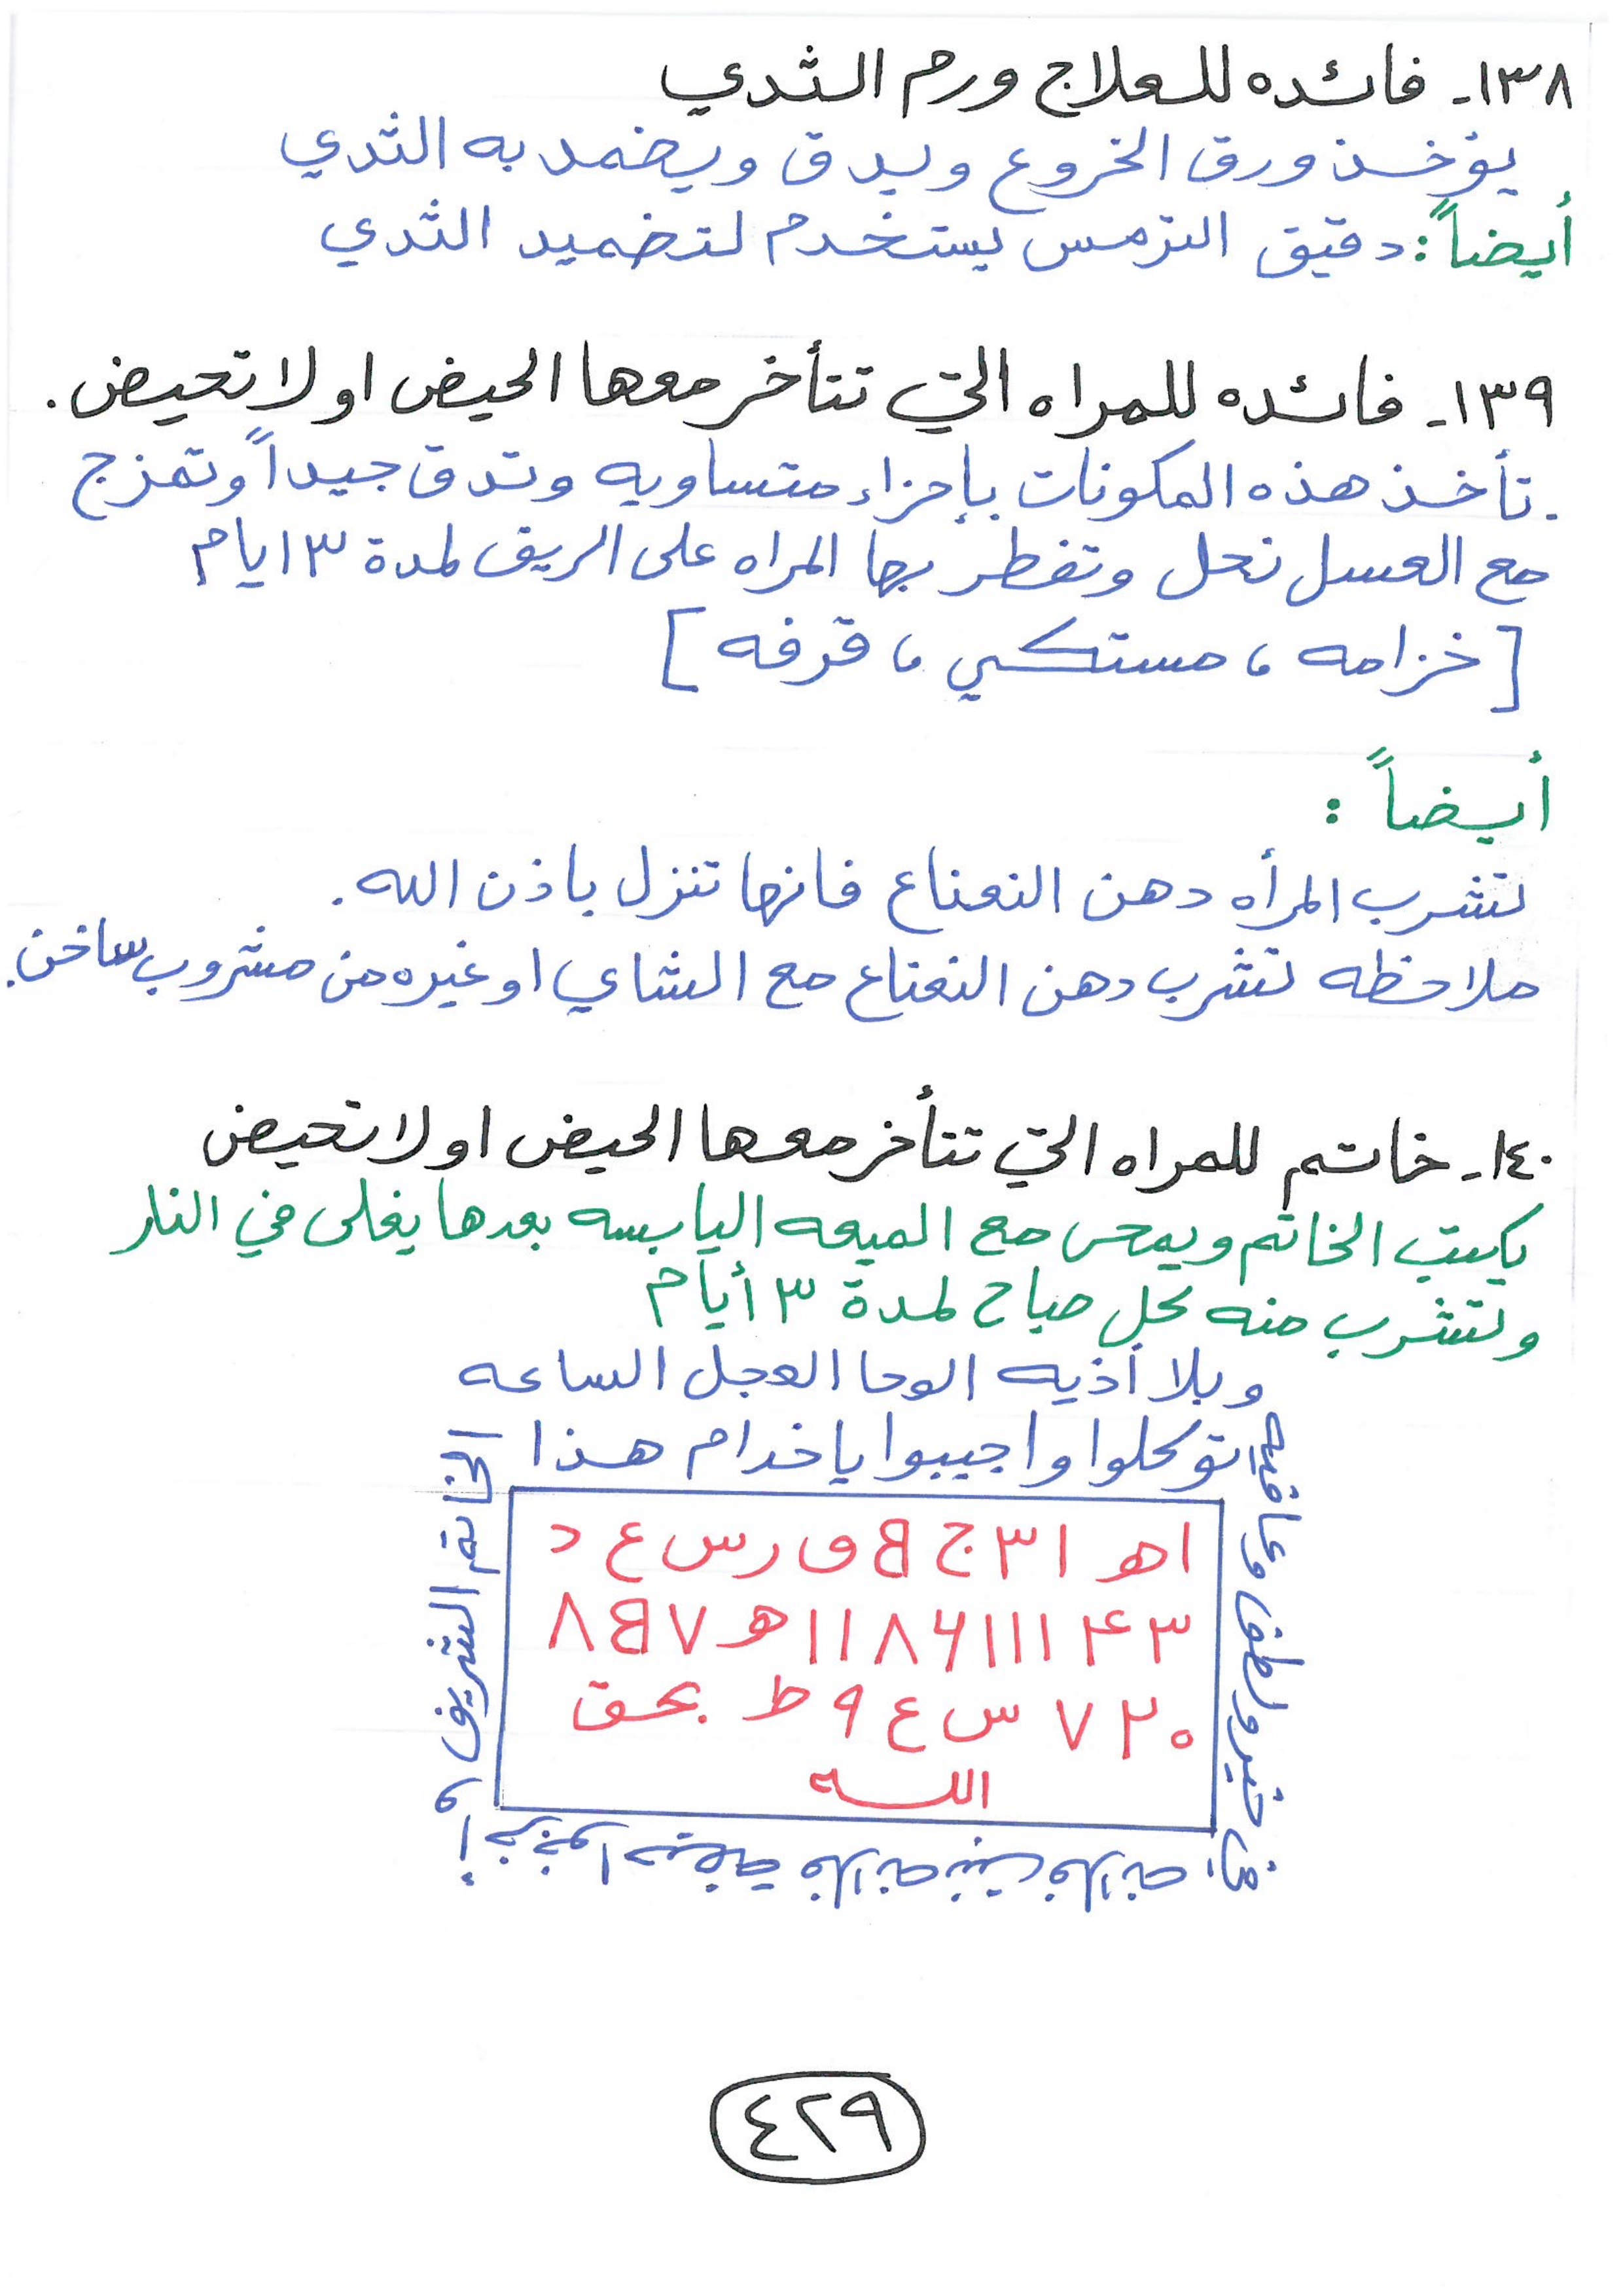 ١٣٨- فائده للعلاج ورم الثدي
يؤخذ ورق الخروع ويدق ويضمد به الثدي
أيضاً: دقيق الترمس يستخدم لتضميد الثدي
١٣٩- فائده للمراه التي تتأخر معها الحيض او لا تحيض.
. تأخذ هذه المكونات بإجزاء متساويه وتدق جيداً وتمزج
مع العسل نحل وتفطر بها المراه على الريق لمدة ٣ ايام
[خزامه ، مستكي ، قرفه]
أيضاً :
تشرب المرأه دهن النعناع فانها تنزل باذن الله.
ملاحظه تشرب دهن النعناع مع الشاي او غيره من مشروب ساخن.
١٤٠- خاتم للمراه التي تتأخر معها الحيض او لا تحيض
يكتب الخاتم ويمحى مع الميعه اليابسه بعدها يغلى في النار
وتشرب منه كل صباح لمدة ٣ أيام
وبلا أذيه الوحا العجل الساعه
توكلوا واجيبوا ياخدام هذا
الخاتم الشريف و
فلانه بنت فلانه
خير ولطف وعافيه
اھ ا ٣ ج B و ر س ع د
٣ ۴ ١١١ ۶ ٨ ١١ ھ ٧ B ٨
٢٠ ٧ س ع ٩ ط بحق
الله
٤٢٩